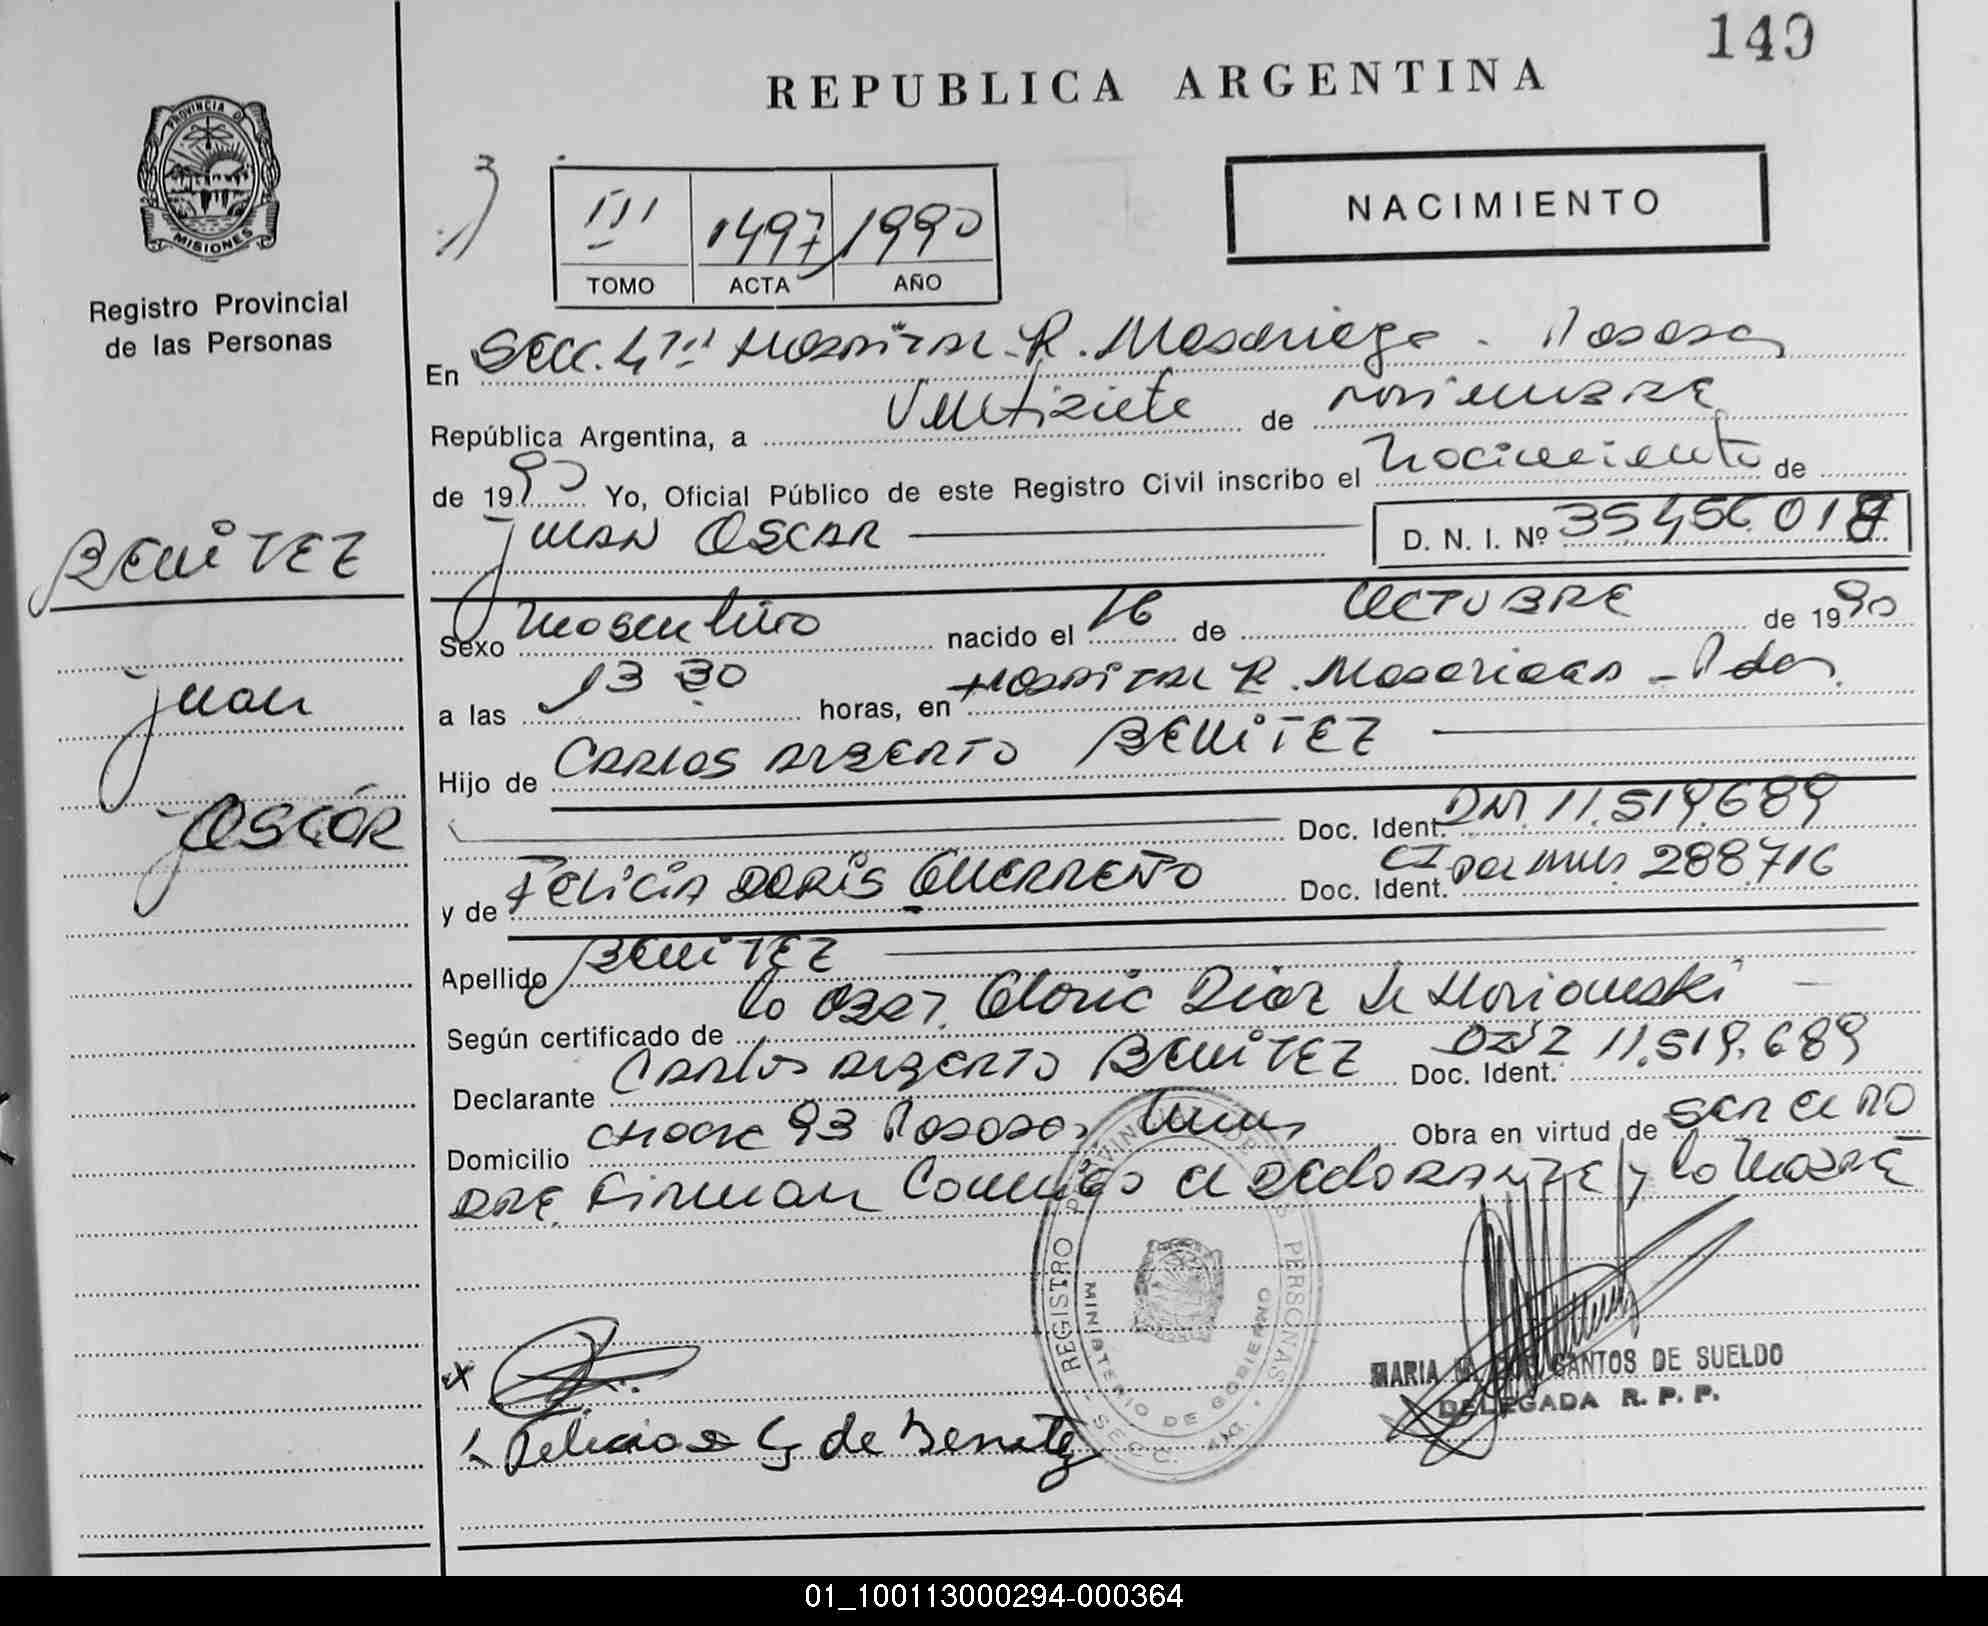 149
REPUBLICA ARGENTINA
PROVINCIA DE
MISIONES
Registro Provincial
de las Personas
III 1497 1990
TOMO ACTA AÑO
NACIMIENTO
En Secc. 4ta Hospital R. Madariaga - Posadas
República Argentina, a Veintisiete de noviembre
de 1990 Yo, Oficial Público de este Registro Civil inscribo el nacimiento de
JUAN OSCAR
D. N. I. Nº 35.456.018
BENITEZ
Juan
OSCAR
Sexo masculino nacido el 16 de OCTUBRE de 1990
a las 13 30 horas, en HOSPITAL R. Madariaga - Pdas.
Hijo de CARLOS ALBERTO BENITEZ
Doc. Ident. DNI. 11.519.689
y de FELICIA DORIS GUERREÑO Doc. Ident. CI Pol Mnes 288.716
Apellido BENITEZ
Según certificado de la Obst. Gloria Diaz de
Declarante CARLOS ALBERTO BENITEZ Doc. Ident. 11.519.689
Domicilio 93 Posadas, Mnes Obra en virtud de ser el PA
DRE Firman Conmigo el DEClaRANTE y la MADRE
REGISTRO PROVINCIAL DE LAS PERSONAS
MINISTERIO DE GOBIERNO
SECC. 4ta.
G de Benitez
MARIA SANTOS DE SUELDO
DELEGADA R. P. P.
01_100113000294-000364